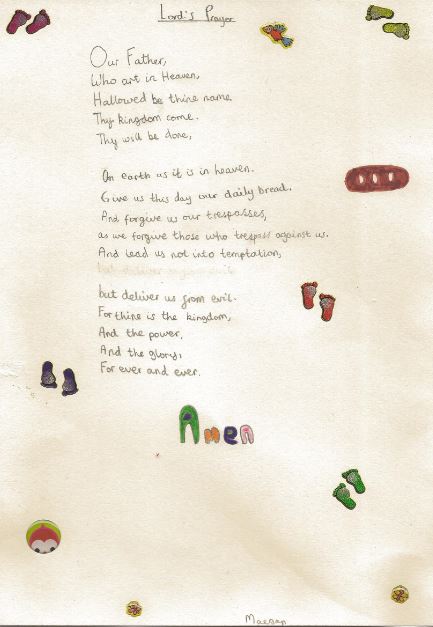 Lord's Prayer
Our Father,
Who art in Heaven,
Hallowed be thine name
Thy kingdom come.
Thy will be done,
On earth as it is in heaven.
Give us this day our daily bread.
And forgive us our trespasses,
as we forgive those who trespass against us.
And lead us not into temptation,
but deliver us from evil
but deliver us from evil.
For thine is the kingdom,
And the power,
And the glory,
For ever and ever.
Amen